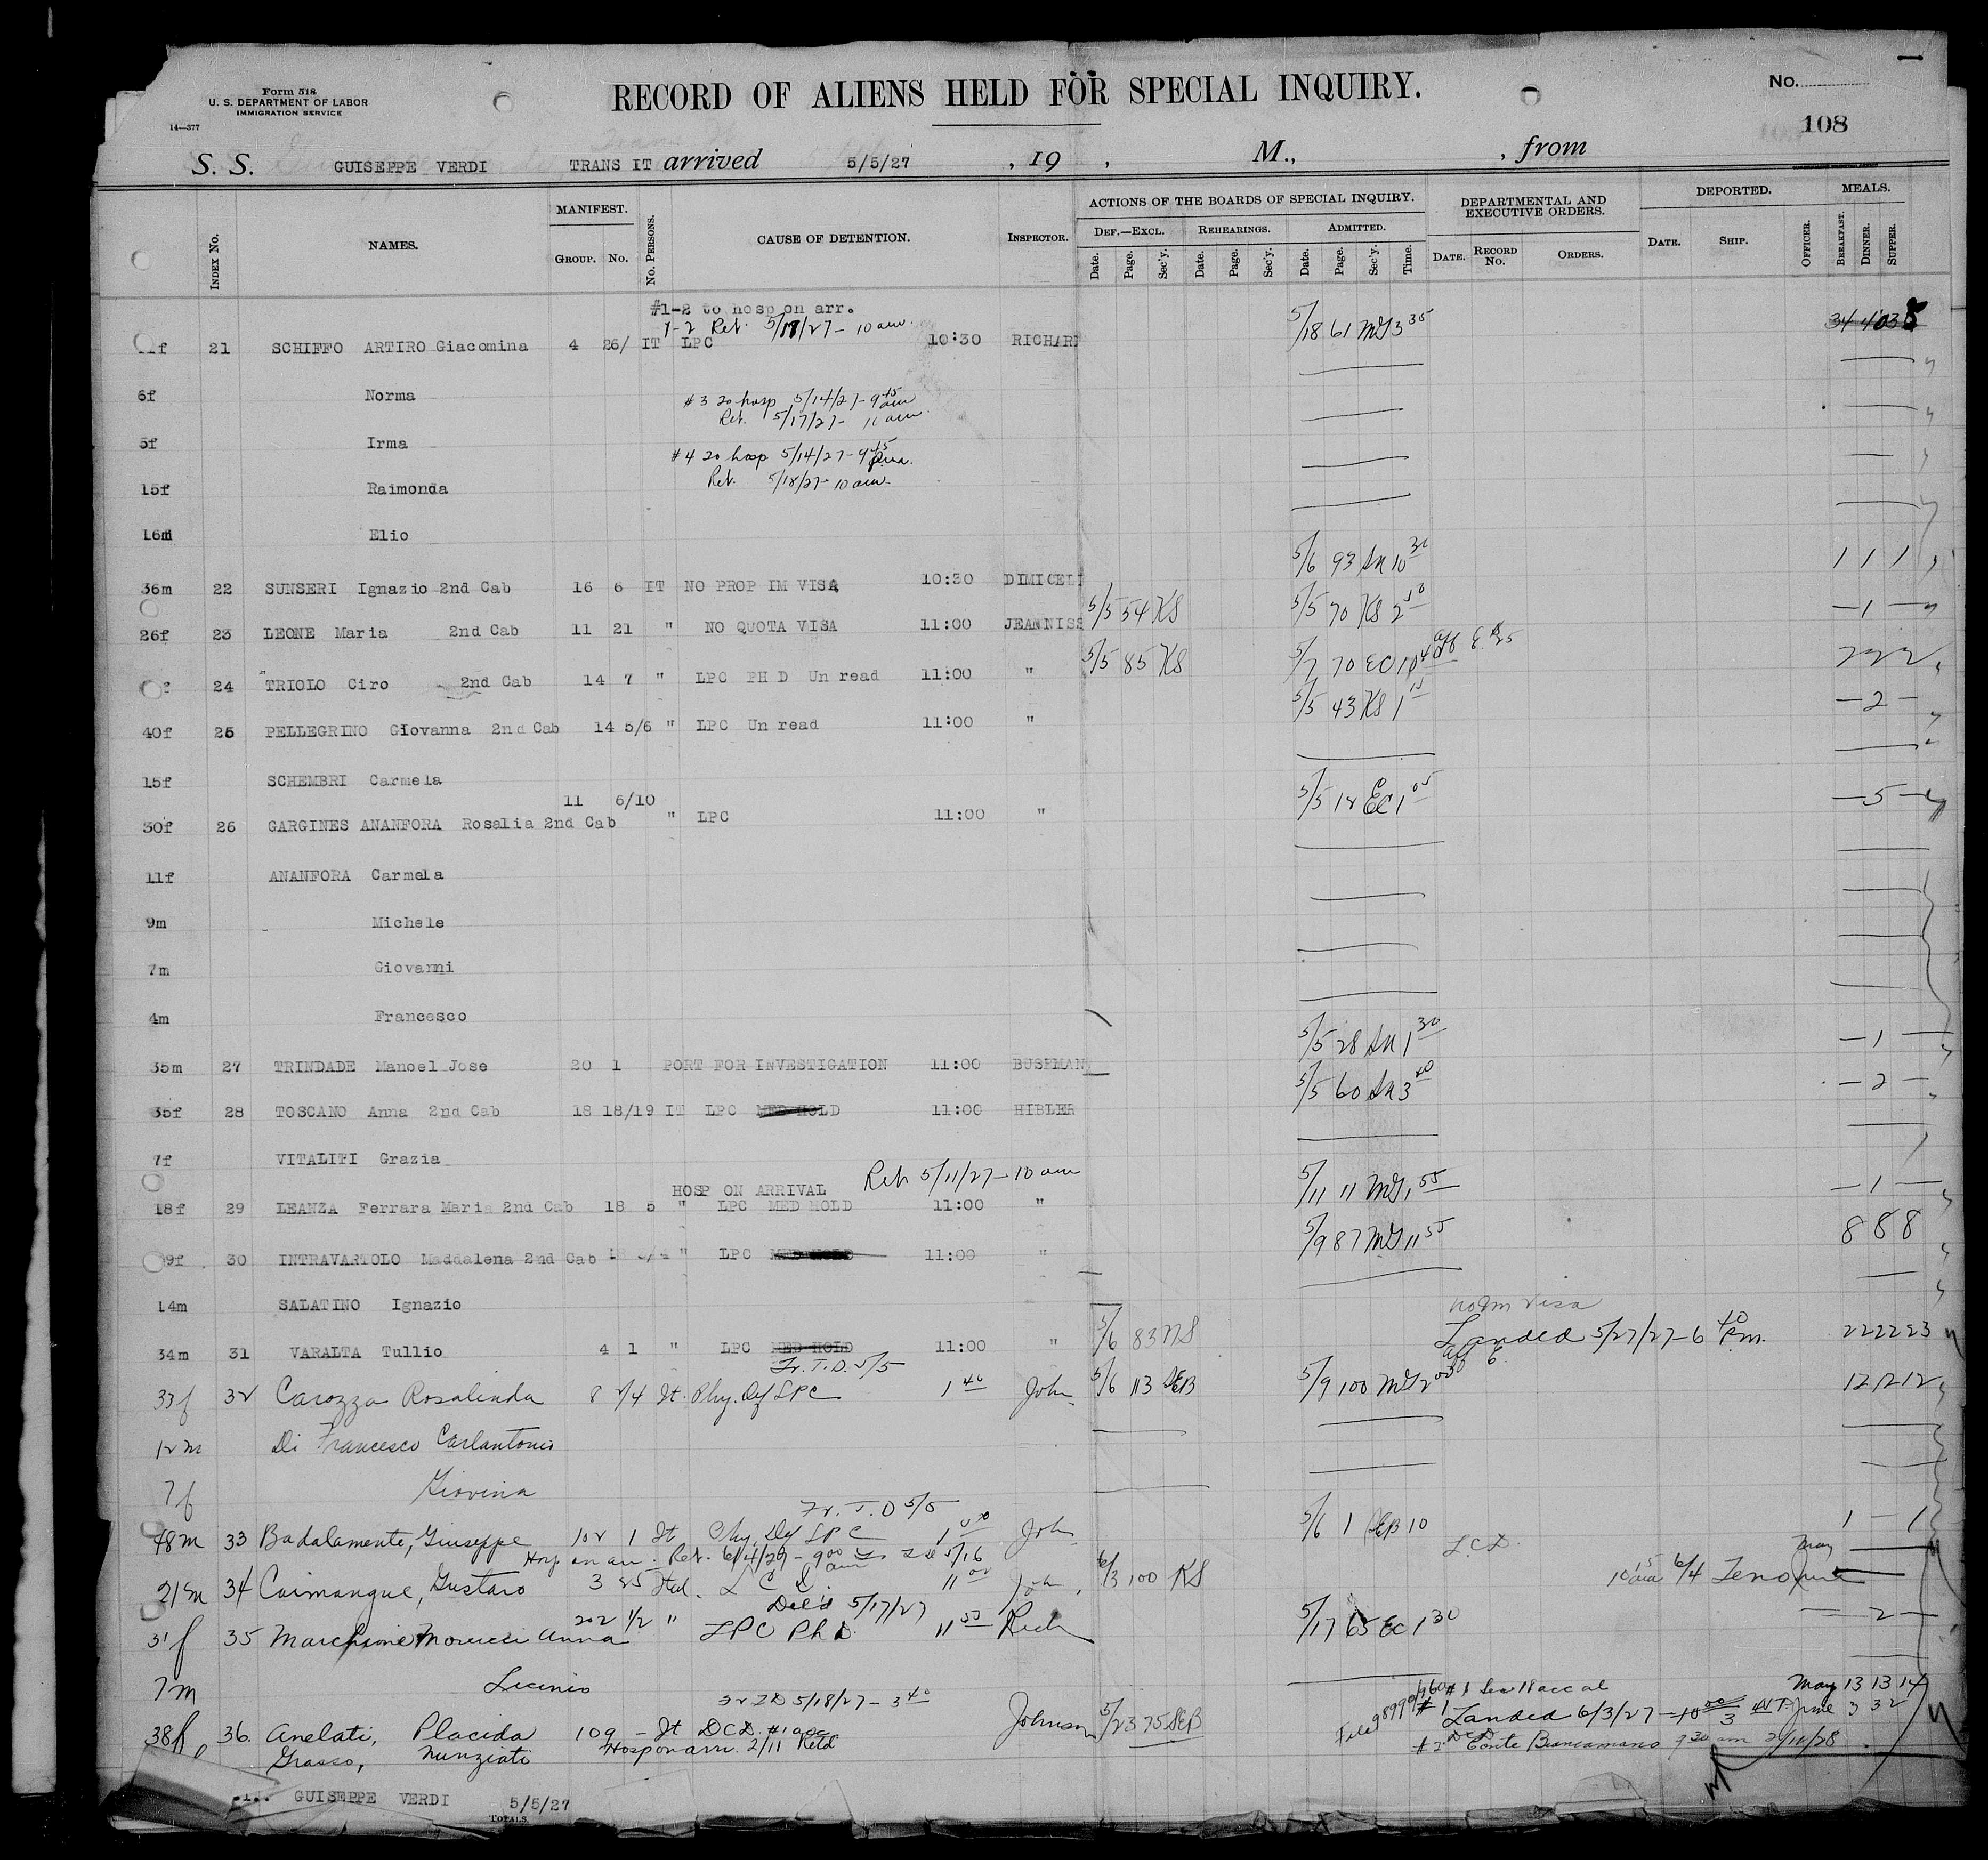 Form 518
U. S. DEPARTMENT OF LABOR
IMMIGRATION SERVICE
14—377
RECORD OF ALIENS HELD FOR SPECIAL INQUIRY.
No.
108
S. S. GUISEPPE VERDI TRANS IT arrived 5/5/27 , 19 , M., , from
INDEX No. NAMES. MANIFEST. GROUP. No. No. PERSONS. CAUSE OF DETENTION. INSPECTOR. ACTIONS OF THE BOARDS OF SPECIAL INQUIRY. DEF.—EXCL. Date. Page. Sec'y. REHEARINGS. Date. Page. Sec'y. ADMITTED. Date. Page. Sec'y. Time. DEPARTMENTAL AND EXECUTIVE ORDERS. DATE. RECORD No. ORDERS. DEPORTED. DATE. SHIP. OFFICER. MEALS. BREAKFAST. DINNER. SUPPER.
#1-2 to hosp on arr.
1-2 Ret. 5/17/27 - 10 am.
21 SCHIFFO ARTIRO Giacomina 4 26/ IT LPC 10:30 RICHARD 5/18 61 MG 3 35
6f Norma
#3 to hosp 5/14/27 - 9 45 am
Ret. 5/17/27 - 10 am.
5f Irma
#4 to hosp 5/14/27 - 9 45 am.
Ret. 5/18/27 - 10 am.
15f Raimonda
16m Elio
36m 22 SUNSERI Ignazio 2nd Cab 16 6 IT NO PROP IM VISA 10:30 DIMICELI 5/6 93 SN 10 30 1 1 1
26f 23 LEONE Maria 2nd Cab 11 21 " NO QUOTA VISA 11:00 JEANNISS 5/5 54 KS 5/5 70 KS 2 50 — 1 —
24 TRIOLO Ciro 2nd Cab 14 7 " LPC PH D Un read 11:00 " 5/5 85 KS 5/7 70 EC 10 2 2 2
40f 25 PELLEGRINO Giovanna 2nd Cab 14 5/6 " LPC Un read 11:00 " 5/5 43 KS 1 15 — 2 —
15f SCHEMBRI Carmela
30f 26 GARGINES ANANFORA Rosalia 2nd Cab 11 6/10 " LPC 11:00 " 5/5 18 EC 1 05 — 5 —
11f ANANFORA Carmela
9m Michele
7m Giovanni
4m Francesco
35m 27 TRINDADE Manoel Jose 20 1 PORT FOR INVESTIGATION 11:00 BUSHMAN 5/5 28 SN 1 30 — 1 —
35f 28 TOSCANO Anna 2nd Cab 18 18/19 IT LPC MED HOLD 11:00 HIBLER 5/5 60 SN 3 40 — 2 —
7f VITALITI Grazia
HOSP ON ARRIVAL Ret 5/11/27 - 10 am
18f 29 LEANZA Ferrara Maria 2nd Cab 18 5 " LPC MED HOLD 11:00 " 5/11 11 MG 1 55 — 1 —
9f 30 INTRAVARTOLO Maddalena 2nd Cab " LPC MED HOLD 11:00 " 5/9 87 MG 11 55 8 8 8
14m SALATINO Ignazio
34m 31 VARALTA Tullio 4 1 " LPC MED HOLD 11:00 " 5/6 83 NS no Im visa Landed 5/27/27 - 6 40 P.m. 22 22 23
Fr. T. D. 5/5
33f 32 Carozza Rosalinda 8 2/4 It. Phy. Def LPC 1 40 John 5/6 113 SEB 5/9 100 MG 2 00 12 12 12
12m Di Francesco Carlantonio
7f Giovina
Fr. T. D 5/5
48m 33 Badalamente, Giuseppe 102 1 It Phy. Def LPC John 5/6 1 SEB 10 1 — 1
Hosp on arr. Ret. 6/4/27 - 9 00 am
21m 34 Caimangue, Gustaro 3 25 Ital. L C D. 11 00 John 6/3 100 KS L.C.D. 10 15 am 6/4 May June
Del'd 5/17/27
31f 35 Marchione Morucci Anna 202 1/2 " LPC Ph D. 11 55 Rich 5/17 65 EC 1 30 — 2 —
7m Licinio
5/18/27 - 3 40
38f 36. Anelati, Placida 109 — It DCD. #1 acc Johnson 5/23 75 SEB #1 Landed 6/3/27 May 13 13 14 June 3 3 2
Grasso, Nunziati Hosp on arr. 2/11 Retd #2 DCD Conte Biancamano 9 30 am 2/11/28
GUISEPPE VERDI 5/5/27
TOTALS